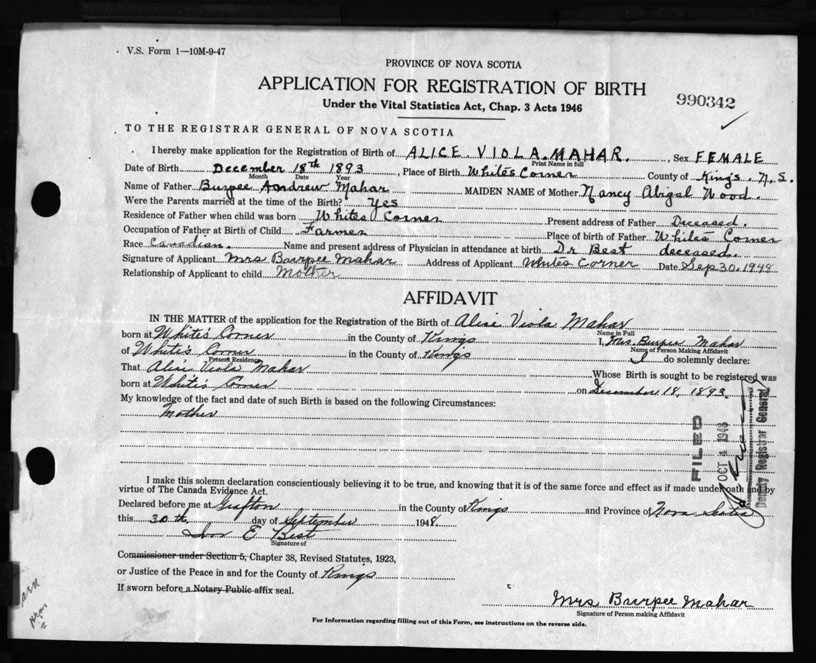 V.S. Form 1—10M-9-47
PROVINCE OF NOVA SCOTIA
APPLICATION FOR REGISTRATION OF BIRTH
990342
Under the Vital Statistics Act, Chap. 3 Acts 1946
TO THE REGISTRAR GENERAL OF NOVA SCOTIA
I hereby make application for the Registration of Birth of ALICE VIOLA MAHAR. , Sex FEMALE
Print Name in full
Date of Birth December 18th 1893 , Place of Birth White's Corner County of Kings. N.S.
Month Date Year
Name of Father Burpee Andrew Mahar MAIDEN NAME of Mother Nancy Abigal Wood.
Were the Parents married at the time of the Birth? Yes
Residence of Father when child was born Whites Corner Present address of Father Deceased.
Occupation of Father at Birth of Child Farmer Place of birth of Father White's Corner
Race Canadian. Name and present address of Physician in attendance at birth Dr Best deceased.
Signature of Applicant Mrs Burpee Mahar Address of Applicant White's Corner Date Sep 30, 1948
Relationship of Applicant to child Mother
AFFIDAVIT
IN THE MATTER of the application for the Registration of the Birth of Alice Viola Mahar
Name in Full
born at White's Corner in the County of Kings I, Mrs. Burpee Mahar
Name of Person Making Affidavit
of White's Corner in the County of Kings I do solemnly declare:
Present Residence
That Alice Viola Mahar Whose Birth is sought to be registered was
born at White's Corner on December 18, 1893.
My knowledge of the fact and date of such Birth is based on the following Circumstances:
Mother
FILED
OCT 4 1948
Deputy Registrar General
I make this solemn declaration conscientiously believing it to be true, and knowing that it is of the same force and effect as if made under oath and by
virtue of The Canada Evidence Act.
Declared before me at Grafton in the County of Kings and Province of Nova Scotia
this 30th day of September 1948.
E Best
Signature of
Commissioner under Section 5, Chapter 38, Revised Statutes, 1923,
or Justice of the Peace in and for the County of Kings
If sworn before a Notary Public affix seal.
Mrs Burpee Mahar
Signature of Person making Affidavit
For Information regarding filling out of this Form, see instructions on the reverse side.